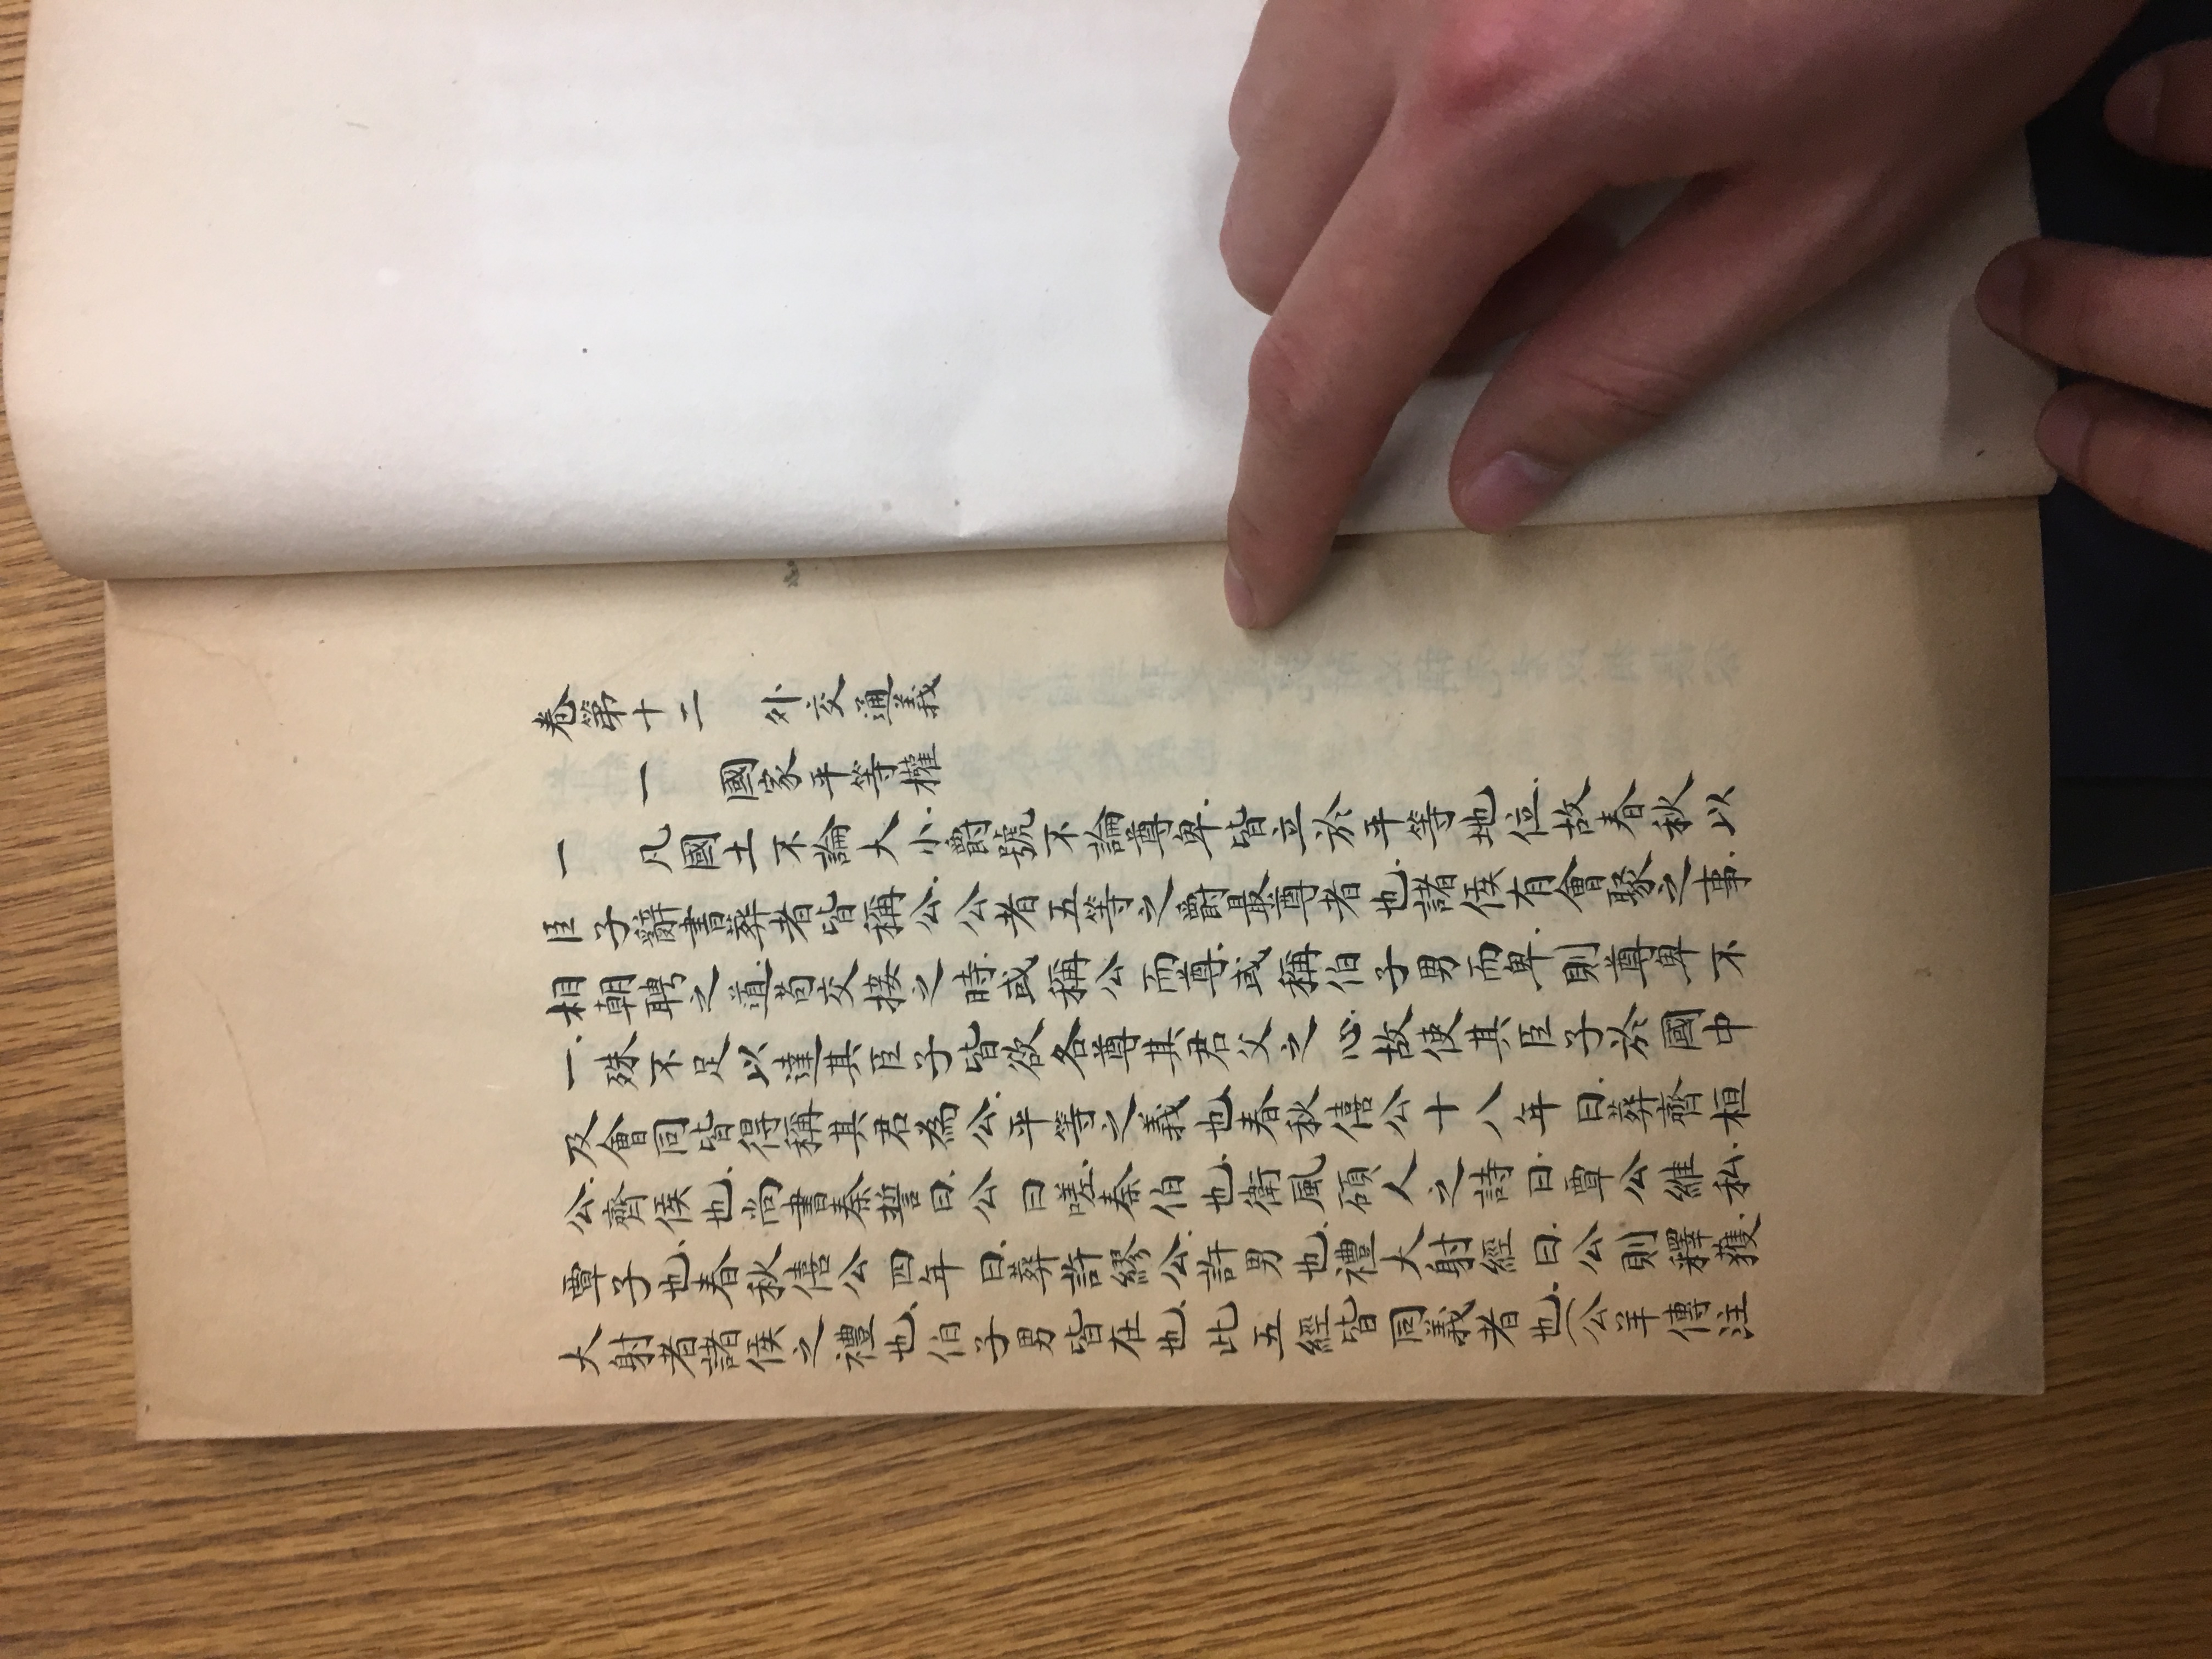 卷第十二　外交通義
一　國家平等權
一　凡國土不論大小、爵號不論尊卑、皆立於平等地位、故春秋以
臣子辭書葬者皆稱公、公者五等之爵最尊者也、諸侯有會聚之事、
相朝聘之道、苟交接之時、或稱公而尊、或稱伯子男而卑、則尊卑不
一、殊不足以達其臣子皆欲各尊其君父之心、故使其臣子於國中
及會同皆得稱其君為公、平等之義也、春秋僖公十八年曰、葬齊桓
公、齊侯也、尚書秦誓曰、公曰嗟、秦伯也、衛風碩人之詩曰、覃公維私、
覃子也、春秋僖公四年曰、葬許繆公、許男也、禮大射經曰、公則釋獲、
大射者諸侯之禮也、伯子男皆在也、此五經皆同義者也、（公羊傳注